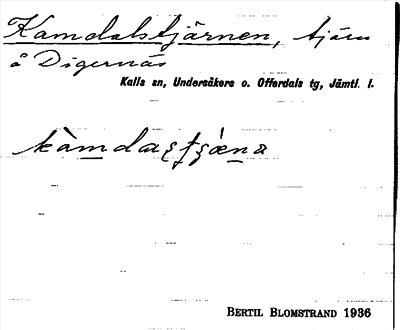 Kamdalstjärnen, tjärn
å Digernäs
Kalls sn, Undersåkers o. Offerdals tg, Jämtl. l.
BERTIL BLOMSTRAND 1936